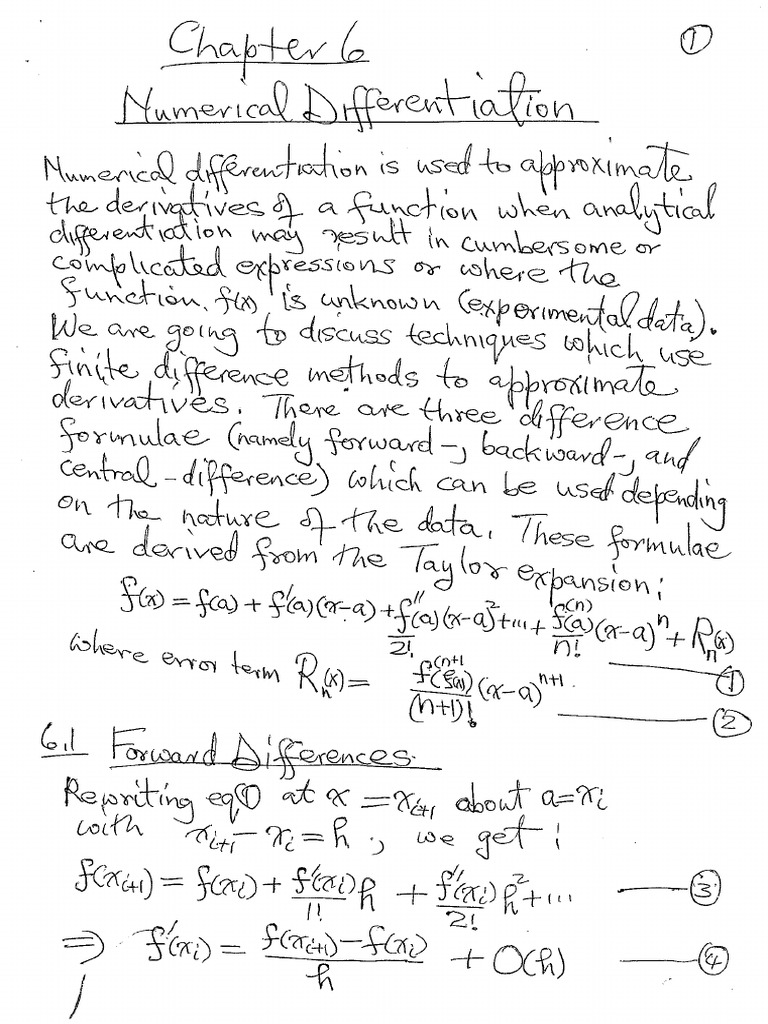 Chapter 6 ①
Numerical Differentiation
Numerical differentiation is used to approximate
the derivatives of a function when analytical
differentiation may result in cumbersome or
complicated expressions or where the
function f(x) is unknown (experimental data).
We are going to discuss techniques which use
finite difference methods to approximate
derivatives. There are three difference
formulae (namely forward-, backward-, and
central-difference) which can be used depending
on the nature of the data. These formulae
are derived from the Taylor expansion:
f(x) = f(a) + f'(a)(x-a) + f''(a)/2! (x-a)² + ... + f⁽ⁿ⁾(a)/n! (x-a)ⁿ + Rₙ(x) — ①
where error term Rₙ(x) = f⁽ⁿ⁺¹(ξ(x))/(n+1)! (x-a)ⁿ⁺¹. — ②
6.1 Forward Differences.
Rewriting eq① at x = xᵢ₊₁ about a = xᵢ
with xᵢ₊₁ - xᵢ = h, we get:
f(xᵢ₊₁) = f(xᵢ) + f'(xᵢ)/1! h + f''(xᵢ)/2! h² + ... — ③
⇒ f'(xᵢ) = (f(xᵢ₊₁) - f(xᵢ))/h + O(h) — ④